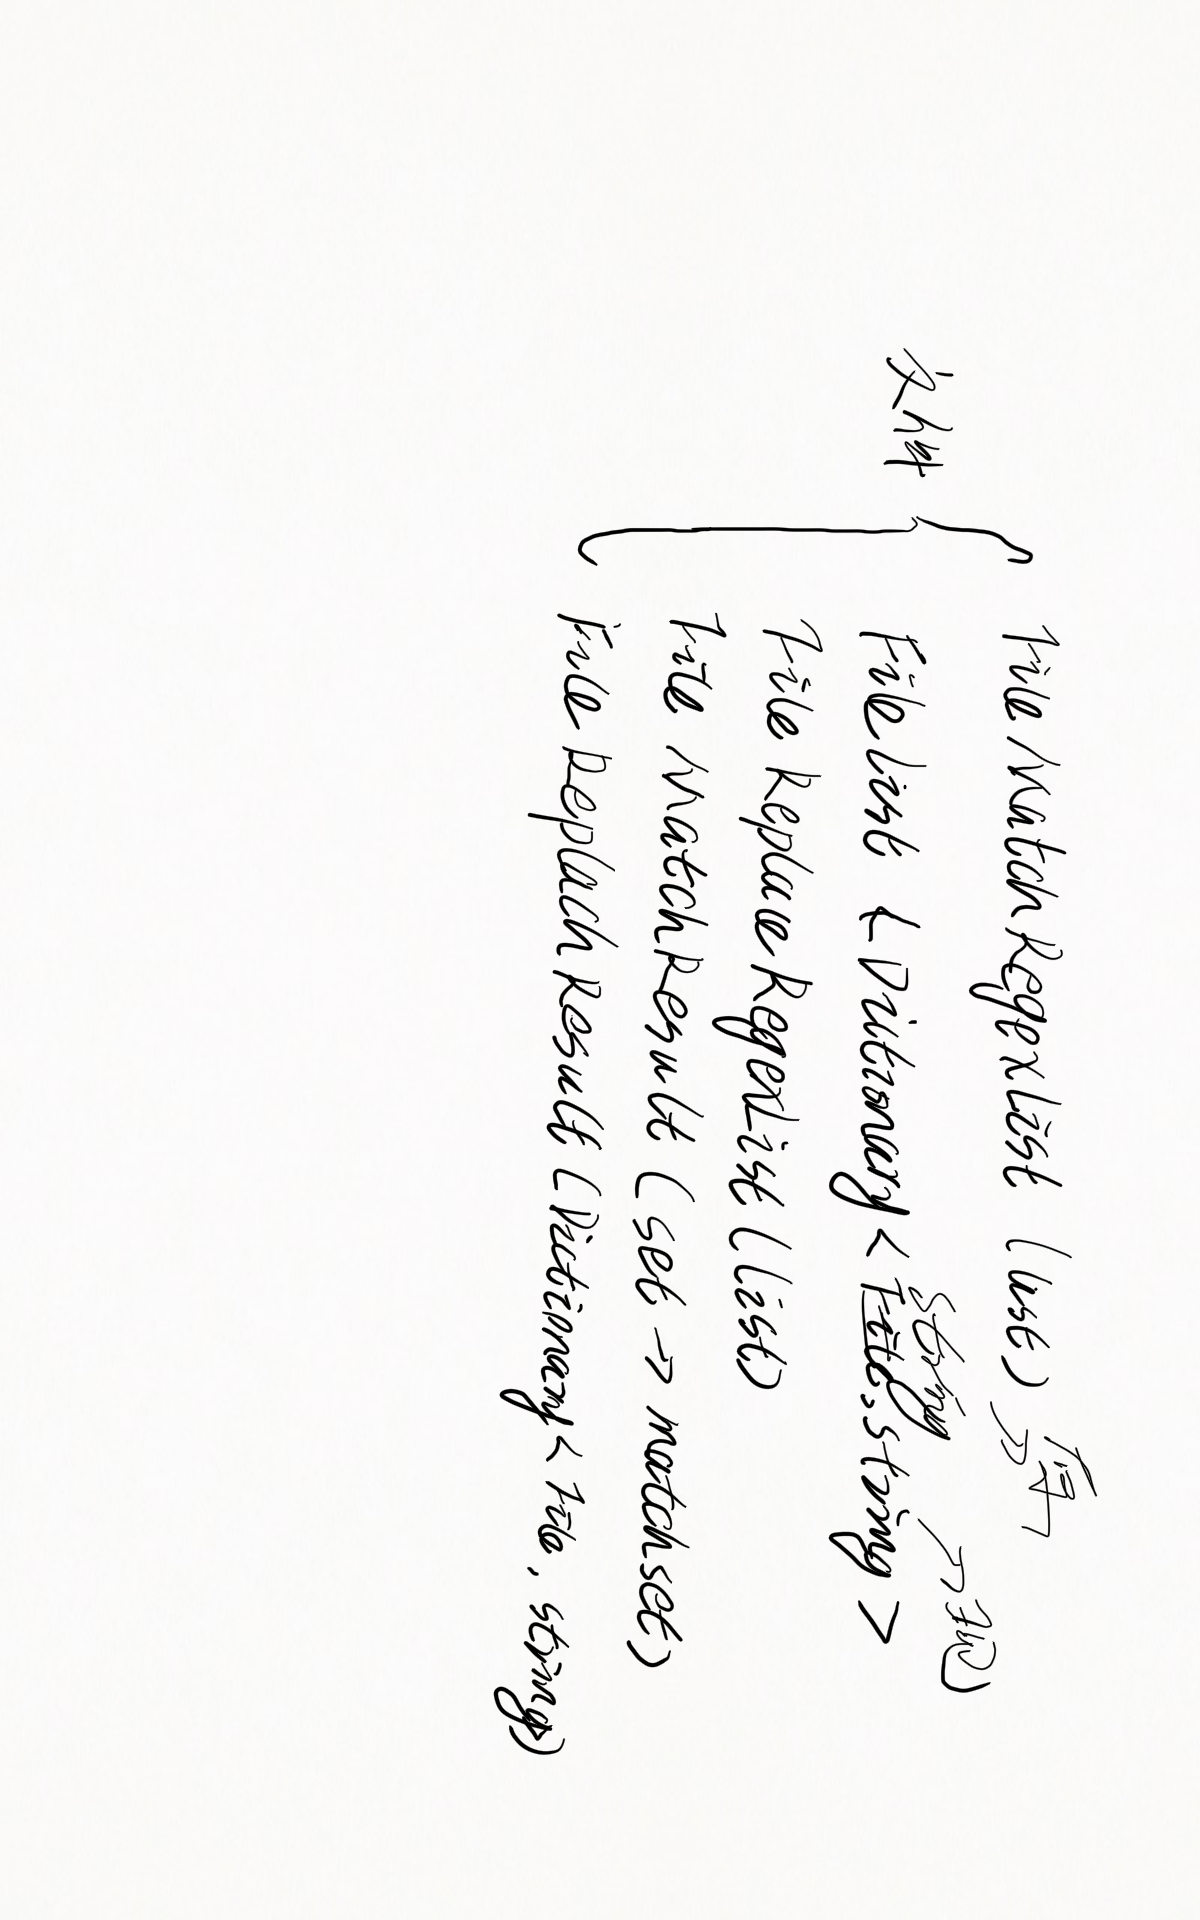 文件
File Match Regex List (List)
File List (Dictionary < File, string >
string
File Replace Regex List (List)
File Match Result (set → matchset)
File Replach Result (Dictionary < File, string>)